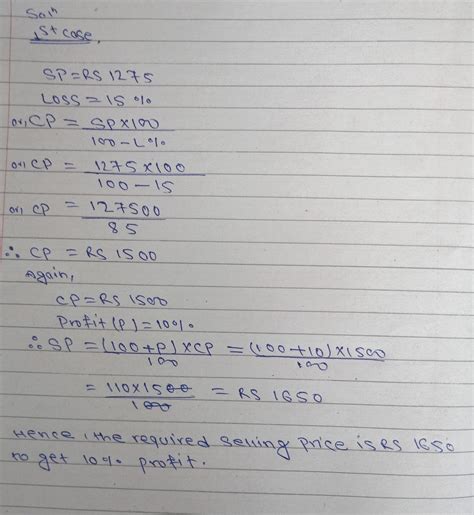 Solⁿ
1st case,
SP = RS 1275
LOSS = 15 %
or, CP = SP×100 / 100 - L%
or, CP = 1275×100 / 100 - 15
or, CP = 127500 / 85
∴ CP = RS 1500
Again,
CP = RS 1500
Profit (P) = 10%
∴ SP = (100+P)×CP / 100 = (100+10)×1500 / 100
= 110×1500 / 100 = RS 1650
Hence, the required selling price is RS 1650
to get 10% profit.